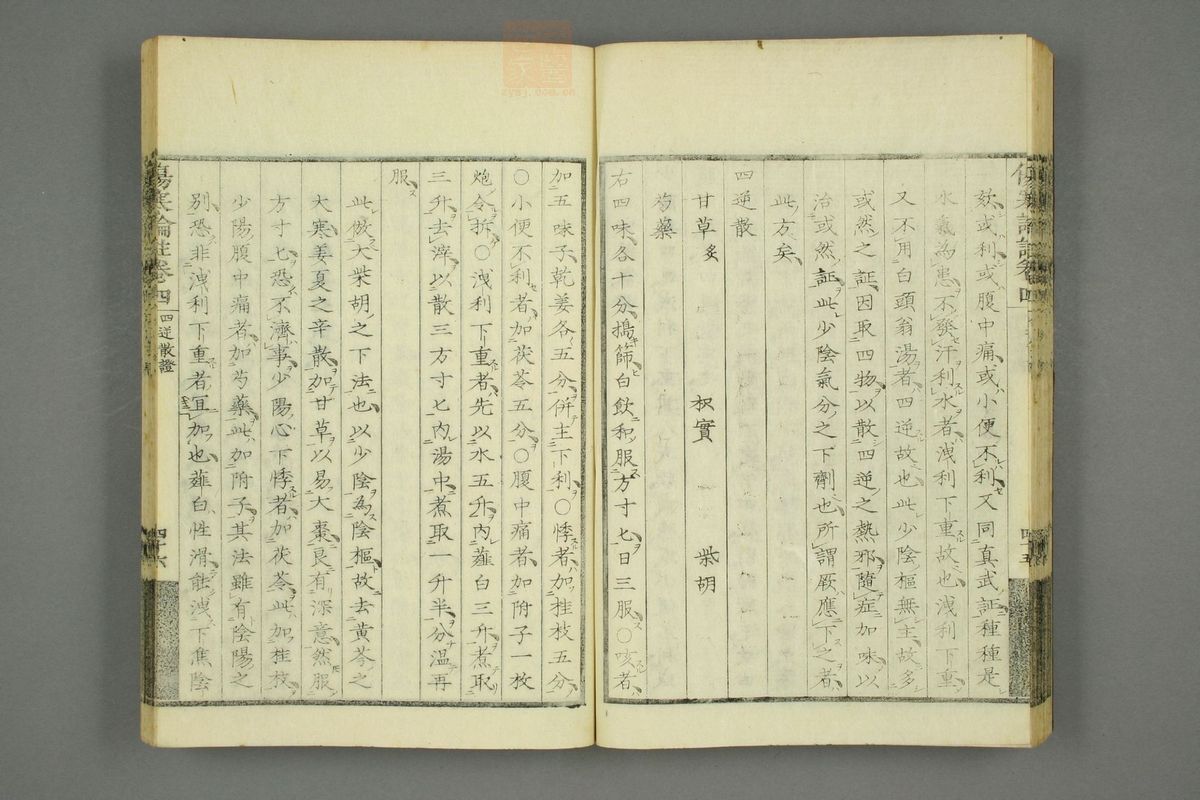 欬或利或腹中痛或小便不利又同真武証種種是
水氣為患不發汗利水者洩利下重故也洩利下重
又不用白頭翁湯者四逆故也此少陰樞無主故多
或然之証因取四物以散四逆之熱邪隨症加味以
治或然証此少陰氣分之下劑也所謂厥應下之者
此方矣
四逆散
甘草炙 枳實 柴胡
芍藥
右四味各十分搗篩白飲和服方寸七日三服○咳者
加五味子乾姜各五分併主下利○悸者加桂枝五分
○小便不利者加茯苓五分○腹中痛者加附子一枚
炮令拆○洩利下重者先以水五升內薤白三升煮取
三升去滓以散三方寸七內湯中煮取一升半分温再
服
此倣大柴胡之下法也以少陰為陰樞故去黃芩之
大寒姜夏之辛散加甘草以易大棗良有深意然服
方寸七恐不濟事少陽心下悸者加茯苓此加桂枝
少陽腹中痛者加芍藥此加附子其法雖有陰陽之
別恐非洩利下重者宜加也薤白性滑能洩下焦陰
傷寒論註卷四
四逆散證
四十五
四十六
zysj.com.cn